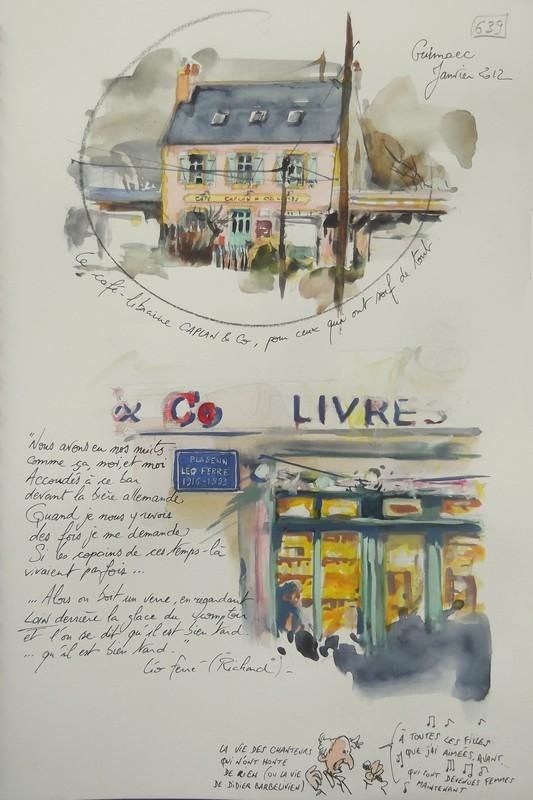 639
Guimaec
Janvier 2012
CAFE CAPLAN & CO
Le café-librairie CAPLAN & Co, pour ceux qui ont soif de tout
& Co LIVRES
PLASENN
LEO FERRE
1916-1993
"Nous avons eu nos nuits
comme ça, moi, et moi
Accoudés à ce bar
devant la bière allemande
Quand je nous y revois
des fois je me demande
Si les copains de ces temps-là
vivaient parfois ...
... Alors on boit un verre, en regardant
LOIN derrière la glace du comptoir
et l'on se dit qu'il est bien tard.
... qu'il est bien tard."
Léo Ferré - ("Richard") -
LA VIE DES CHANTEURS
QUI N'ONT HONTE
DE RIEN (OU LA VIE
DE DIDIER BARBELIVIEN)
À TOUTES LES FILLES
QUE J'AI AIMÉES, AVANT...
QUI SONT DEVENUES FEMMES
MAINTENANT